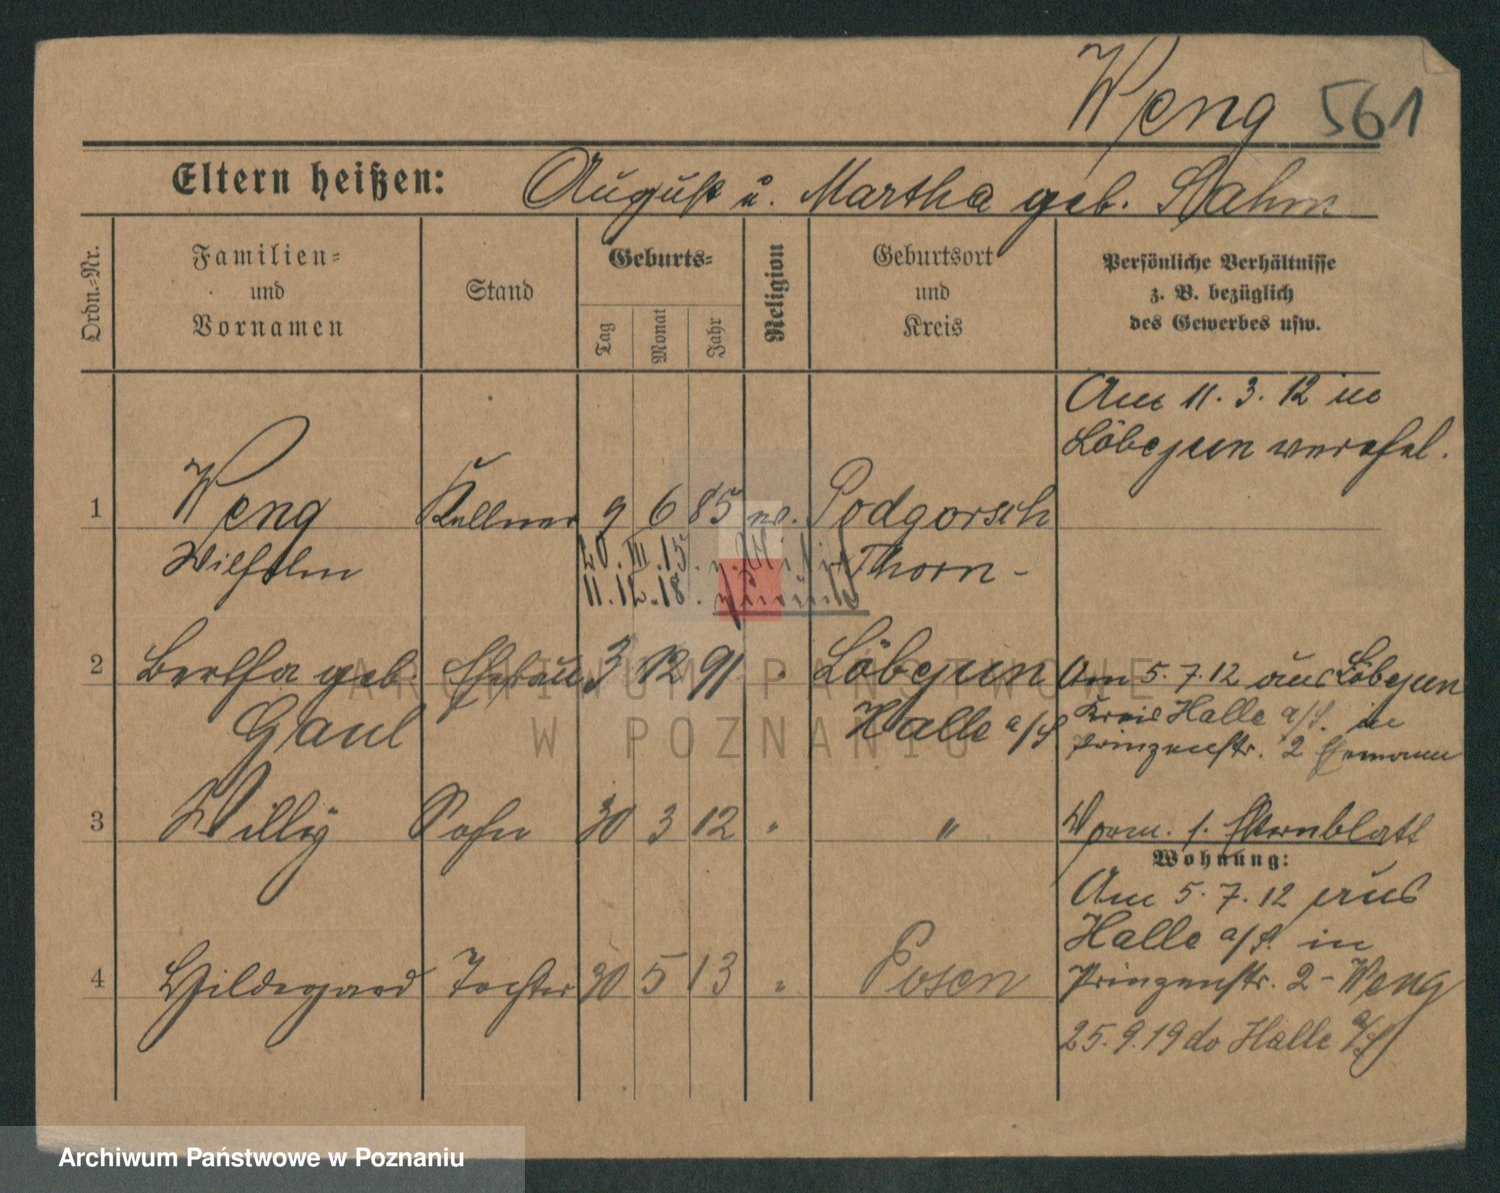 Weng 561
Eltern heißen: August u. Martha geb. Hahm
Ordn.-Nr.
Familien-
und
Vornamen
Stand
Geburts-
Tag
Monat
Jahr
Religion
Geburtsort
und
Kreis
Persönliche Verhältnisse
z. B. bezüglich
des Gewerbes usw.
Am 11. 3. 12 in
Löbejün verehel.
1 Weng Kellner 9 6 85 ev. Podgorsch
Wilhelm Thorn -
20. III. 15. z. Militär
11. 12. 18. zurück
2 Bertha geb. Ehefrau 3 12 91 " Löbejün
Gaul Halle a/S
Am 5. 7. 12 aus Löbejün
Kreis Halle a/S. in
Prinzenstr. 2 Ehemann
3 Willy Sohn 30 3 12 " "
Vorm. s. Elternblatt
Wohnung:
Am 5. 7. 12 aus
Halle a/S. in
Prinzenstr. 2 - Weng
4 Hildegard Tochter 30 5 13 " Posen
25. 9. 19 do Halle a/S
ARCHIWUM PAŃSTWOWE
W POZNANIU
Archiwum Państwowe w Poznaniu